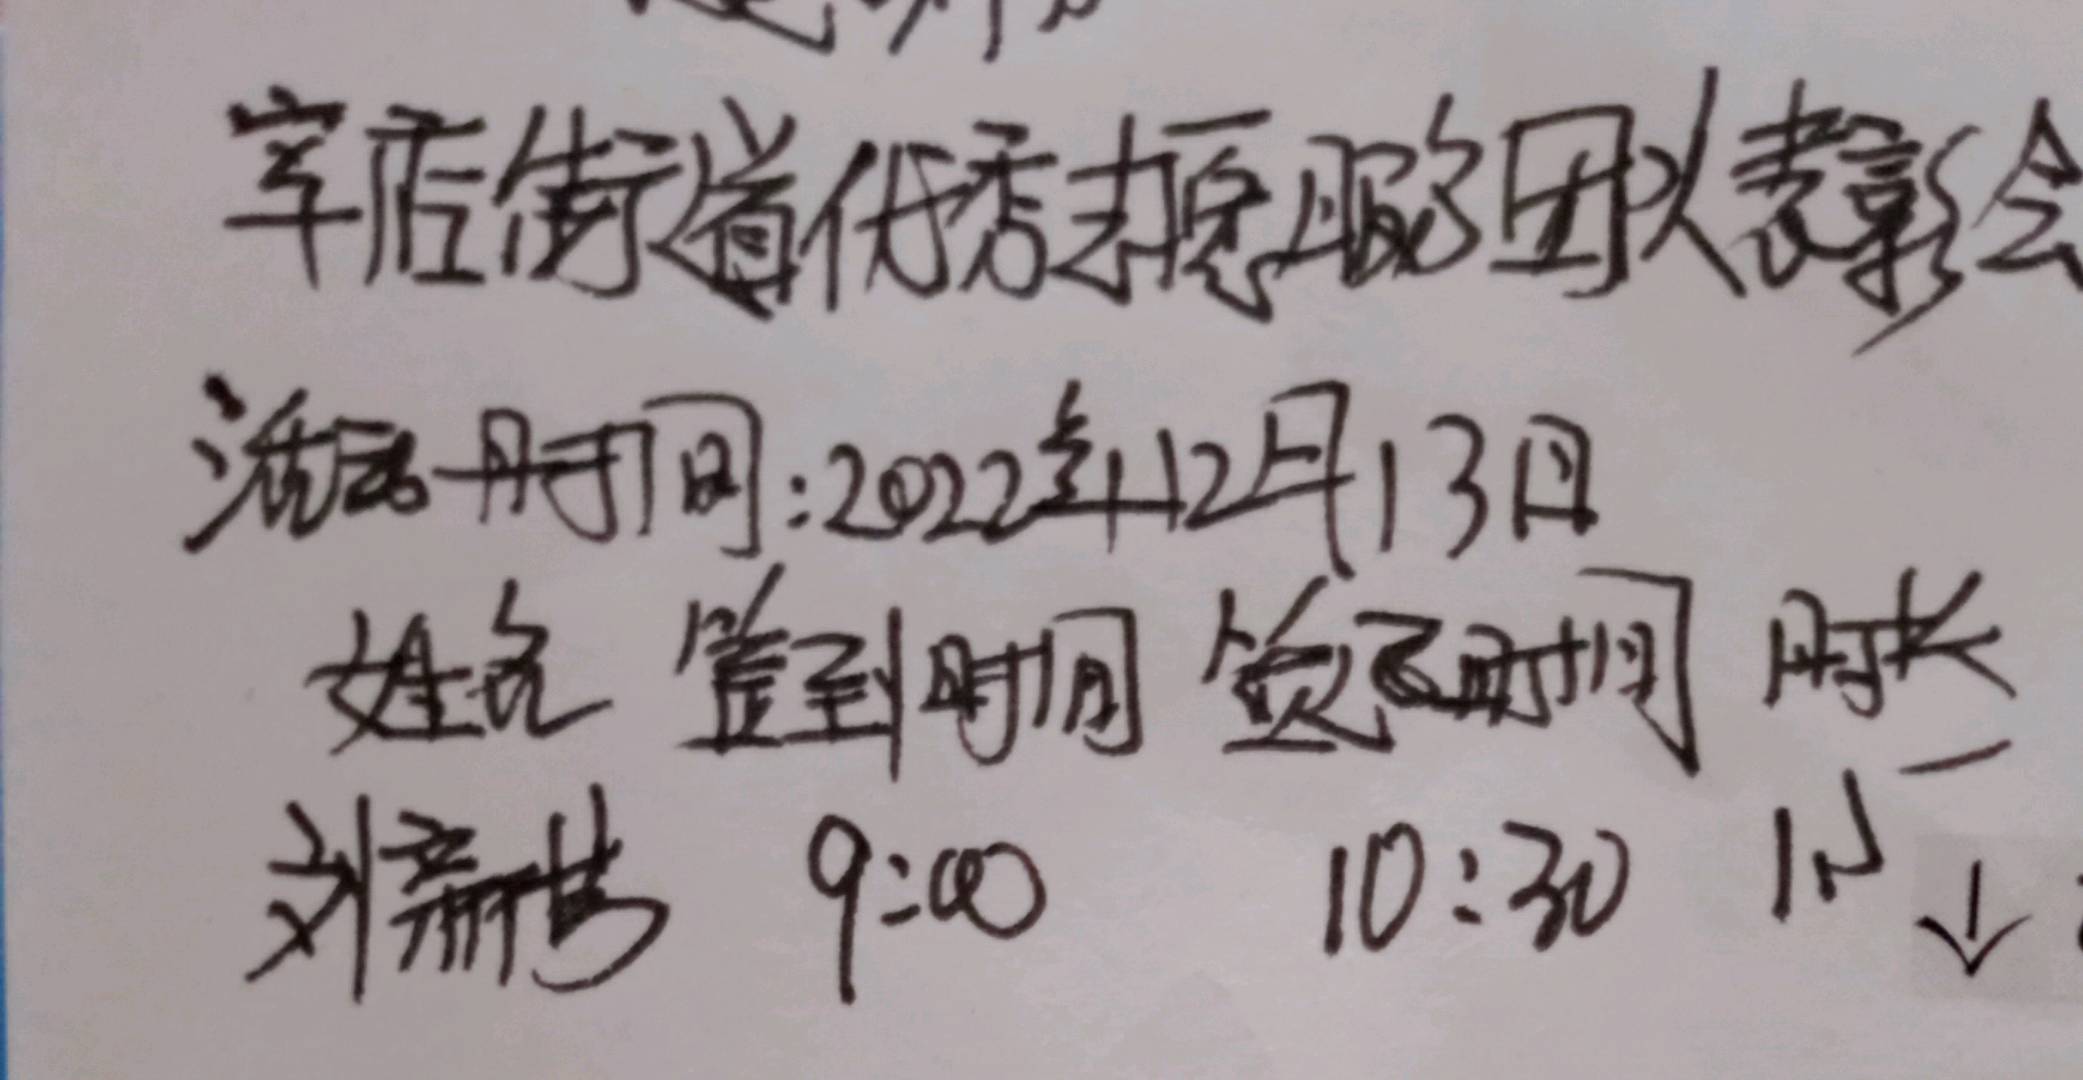 店街道优秀志愿服务团队表彰会
活动时间:2022年12月13日
姓名 签到时间 签退时间 时长
刘 9:00 10:30